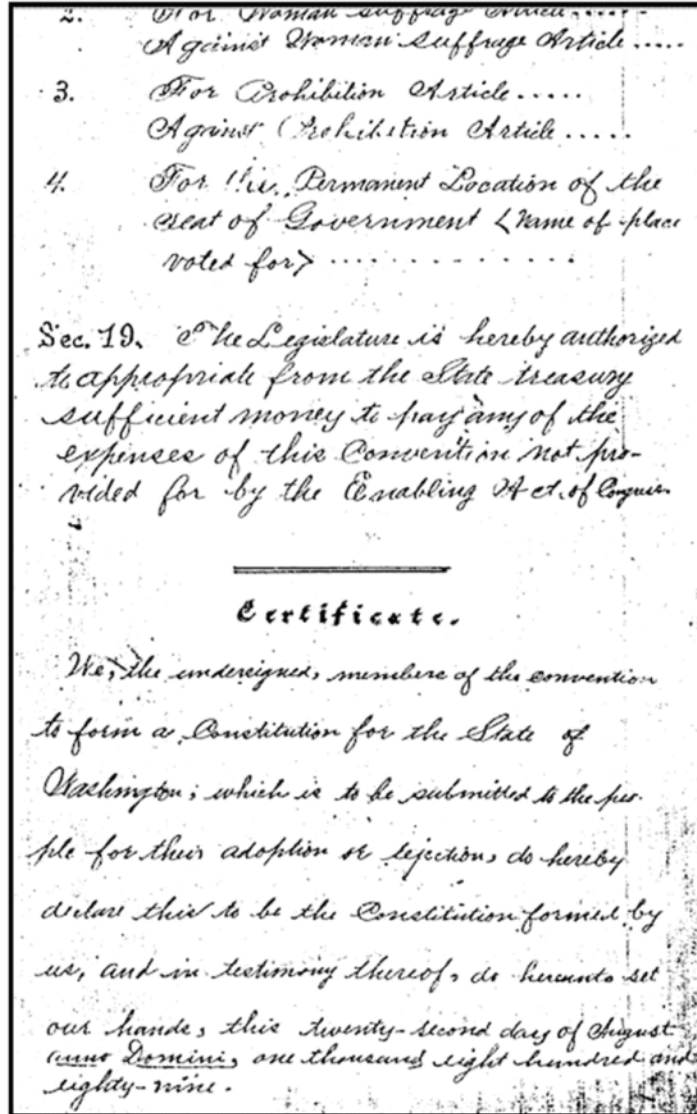 2. For Woman Suffrage Article .....
Against Woman Suffrage Article .....
3. For Prohibition Article .....
Against Prohibition Article .....
4. For the Permanent Location of the
seat of Government (Name of place
voted for) ..............
Sec. 19. The Legislature is hereby authorized
to appropriate from the State treasury
sufficient money to pay any of the
expenses of this Convention not pro-
vided for by the Enabling Act, of Congress.
Certificate.
We, the undersigned, members of the convention
to form a Constitution for the State of
Washington; which is to be submitted to the peo-
ple for their adoption or rejection, do hereby
declare this to be the Constitution formed by
us, and in testimony thereof, do hereunto set
our hands, this twenty-second day of August
anno Domini, one thousand eight hundred and
eighty-nine.